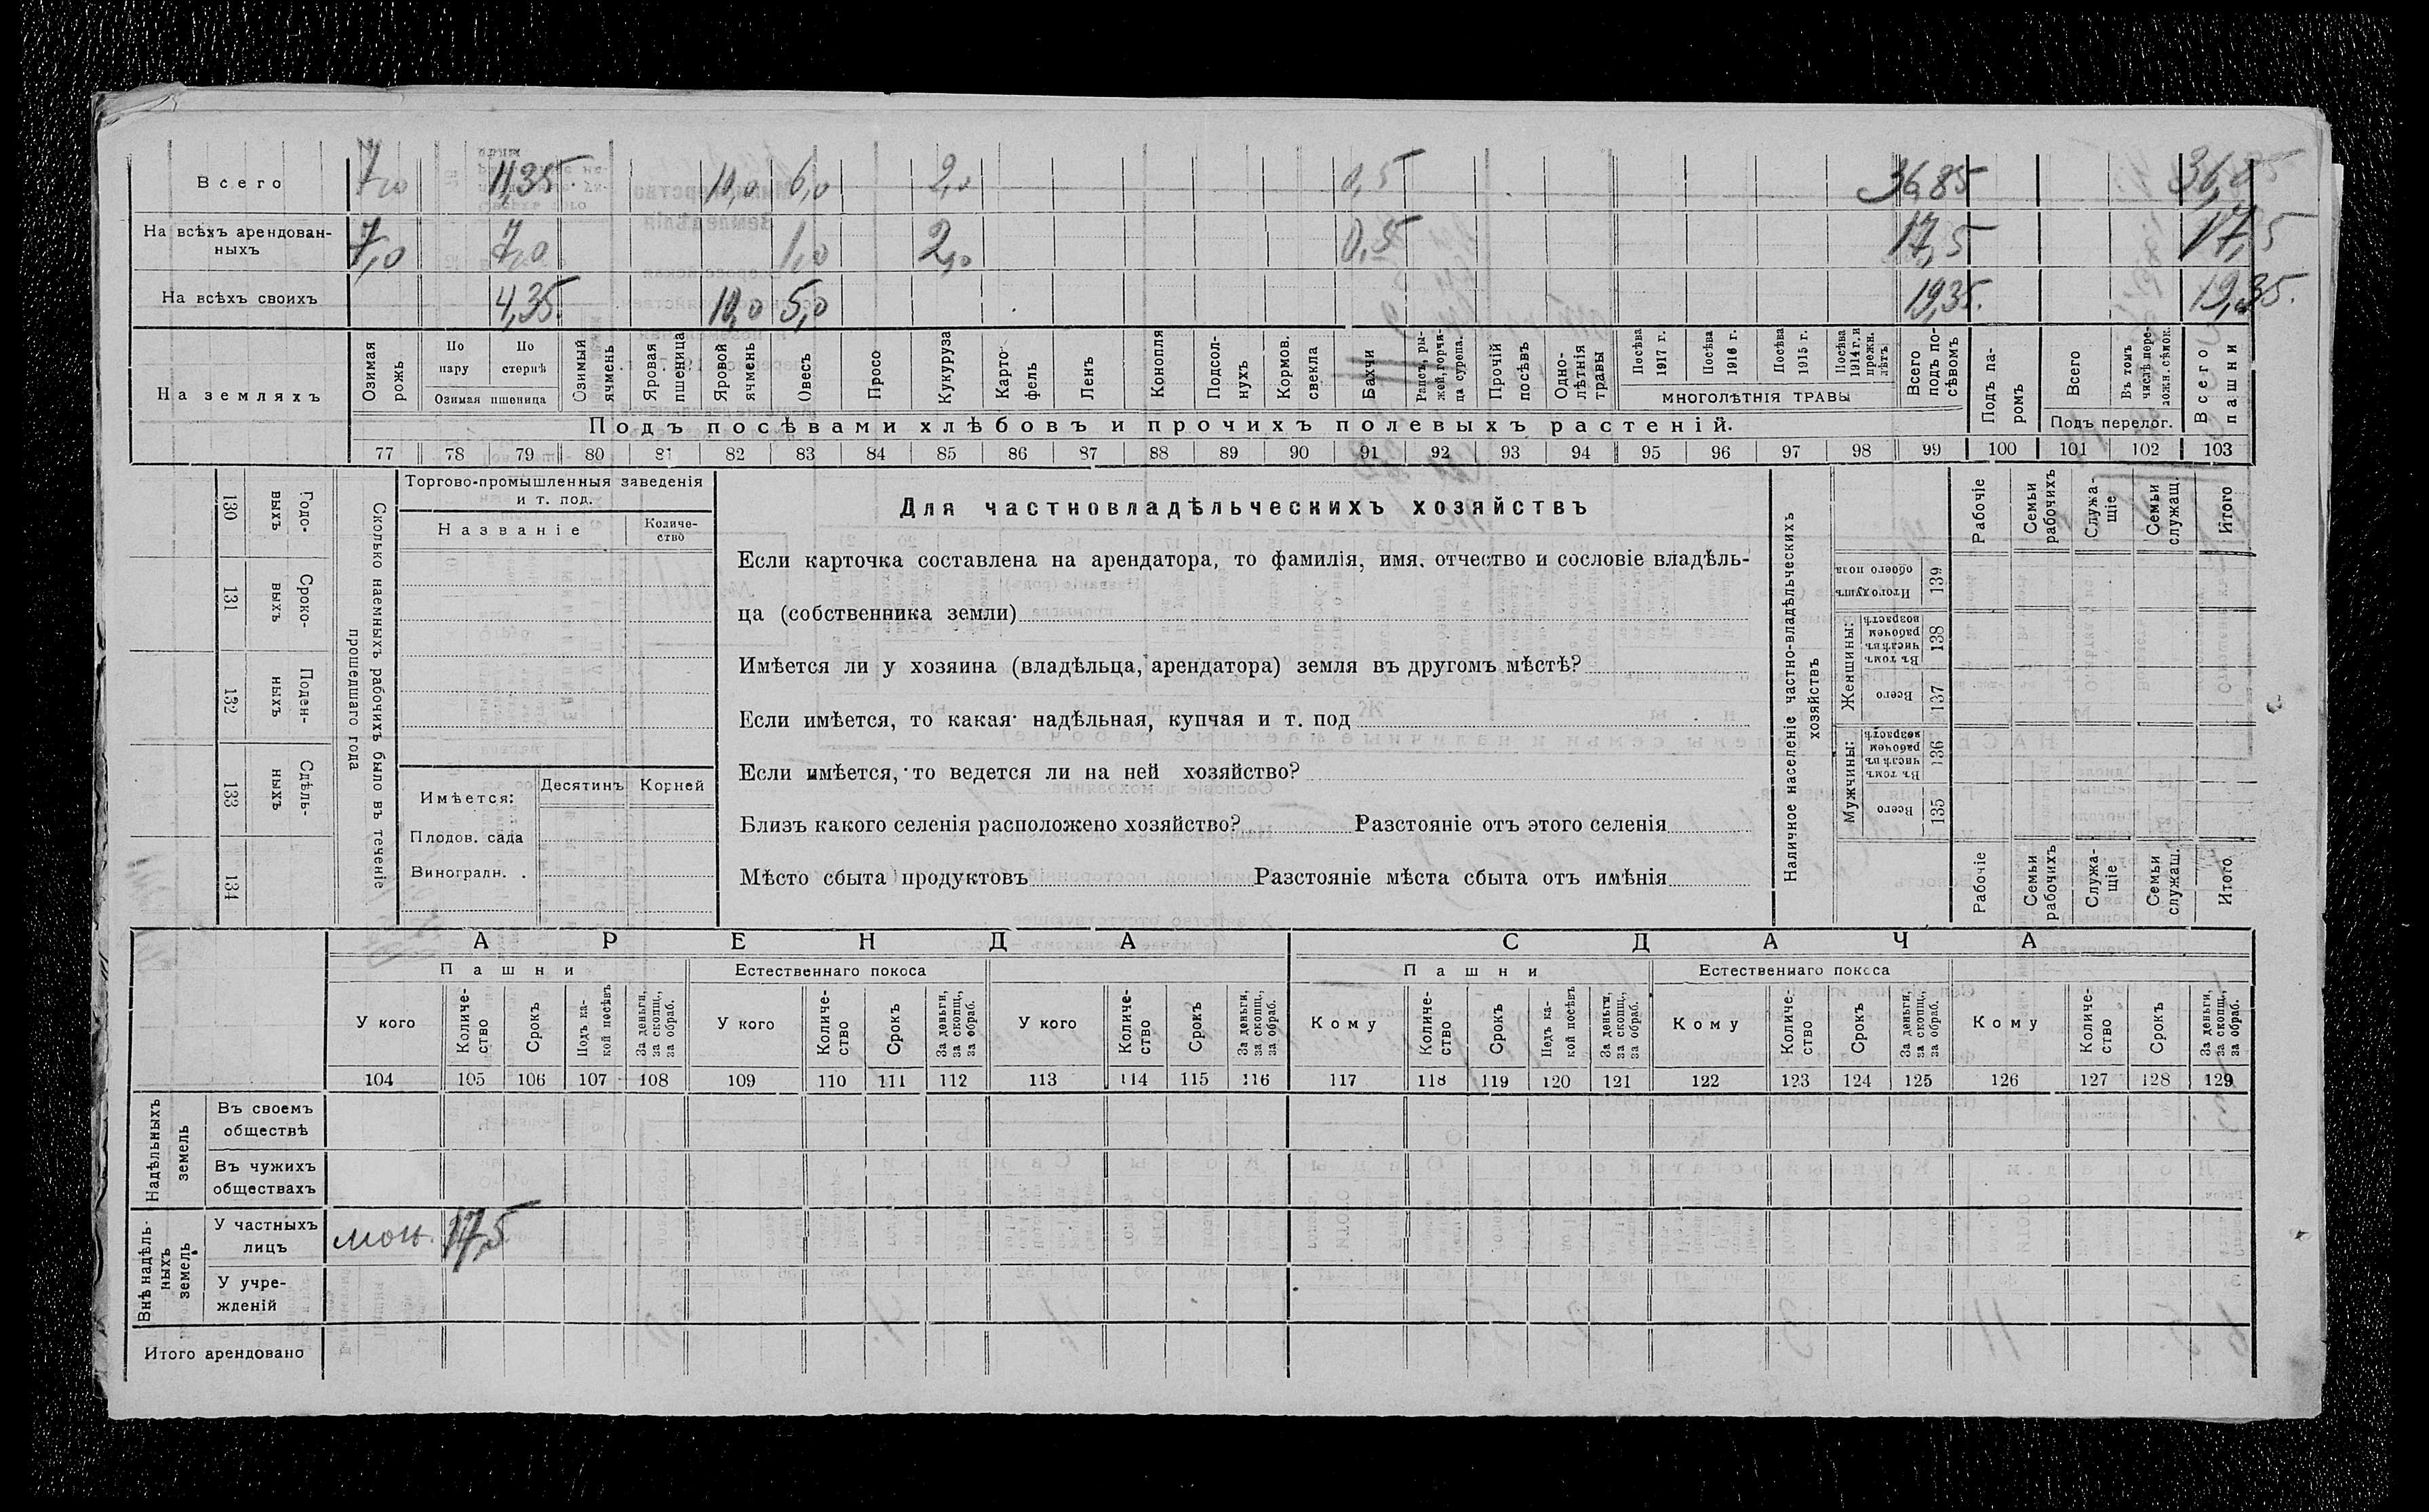 Всего 7,0 11,35 10,0 6,0 2,0 0,5 36,85 36,85
На всѣхъ арендован-
ныхъ 7,0 7,0 1,0 2,0 0,5 17,5 17,5
На всѣхъ своихъ 4,35 10,0 5,0 19,35. 19,35.
На земляхъ
Озимая рожь
По пару
По стернѣ
Озимая пшеница
Озимый ячмень
Яровая пшеница
Яровой ячмень
Овесъ
Просо
Кукуруза
Карто-
фель
Ленъ
Конопля
Подсол-
нухъ
Кормов. свекла
Бахчи
Рапсъ, ры-
жей, горчи-
ца сурепа.
Прочій посѣвъ
Одно-
лѣтнія травы
Посѣва 1917 г.
Посѣва 1916 г.
Посѣва 1915 г.
Посѣва 1914 г. и прежн. лѣтъ
МНОГОЛѢТНІЯ ТРАВЫ
Всего подъ по-
сѣвомъ
Подъ па-
ромъ
Всего
Въ томъ числѣ пере-
ложн. сѣнок.
Подъ перелог.
Всего пашни
Подъ посѣвами хлѣбовъ и прочихъ полевыхъ растеній.
77 78 79 80 81 82 83 84 85 86 87 88 89 90 91 92 93 94 95 96 97 98 99 100 101 102 103
130 Годо-
выхъ
131 Сроко-
выхъ
132 Поден-
ныхъ
133 Сдѣль-
ныхъ
134
Сколько наемныхъ рабочихъ было въ теченіе
прошедшаго года
Торгово-промышленныя заведенія
и т. под.
Названіе
Количе-
ство
Имѣется: Десятинъ Корней
Плодов. сада
Виноградн. .
Для частновладѣльческихъ хозяйствъ
Если карточка составлена на арендатора, то фамилія, имя, отчество и сословіе владѣль-
ца (собственника земли)
Имѣется ли у хозяина (владѣльца, арендатора) земля въ другомъ мѣстѣ?
Если имѣется, то какая: надѣльная, купчая и т. под
Если имѣется, то ведется ли на ней хозяйство?
Близъ какого селенія расположено хозяйство? Разстояніе отъ этого селенія
Мѣсто сбыта продуктовъ Разстояніе мѣста сбыта отъ имѣнія
Наличное населеніе частно-владѣльческихъ
хозяйствъ
Рабочіе
Семьи рабочихъ
Служа-
щіе
Семьи служащ.
Итого
Итого душъ обоего пола 139
Женщины:
Въ томъ числѣ въ рабочем возрастѣ 138
Всего 137
Мужчины:
Въ томъ числѣ въ рабочем возрастѣ 136
Всего 135
Рабочіе
Семьи рабочихъ
Служа-
щіе
Семьи служащ.
Итого
АРЕНДА СДАЧА
Пашни Естественнаго покоса Пашни Естественнаго покоса
У кого
Количе-
ство
Срокъ
Подъ ка-
кой посѣвъ
За деньги, за скопщ., за обраб.
У кого
Количе-
ство
Срокъ
За деньги, за скопщ., за обраб.
У кого
Количе-
ство
Срокъ
За деньги, за скопщ., за обраб.
Кому
Количе-
ство
Срокъ
Подъ ка-
кой посѣвъ
За деньги, за скопщ., за обраб.
Кому
Количе-
ство
Срокъ
За деньги, за скопщ., за обраб.
Кому
Количе-
ство
Срокъ
За деньги, за скопщ., за обраб.
104 105 106 107 108 109 110 111 112 113 114 115 116 117 118 119 120 121 122 123 124 125 126 127 128 129
Надѣльныхъ земель
Въ своемъ
обществѣ
Въ чужихъ
обществахъ
Внѣ надѣль-
ныхъ земель
У частныхъ
лицъ 17,5
У учре-
жденій
Итого арендовано